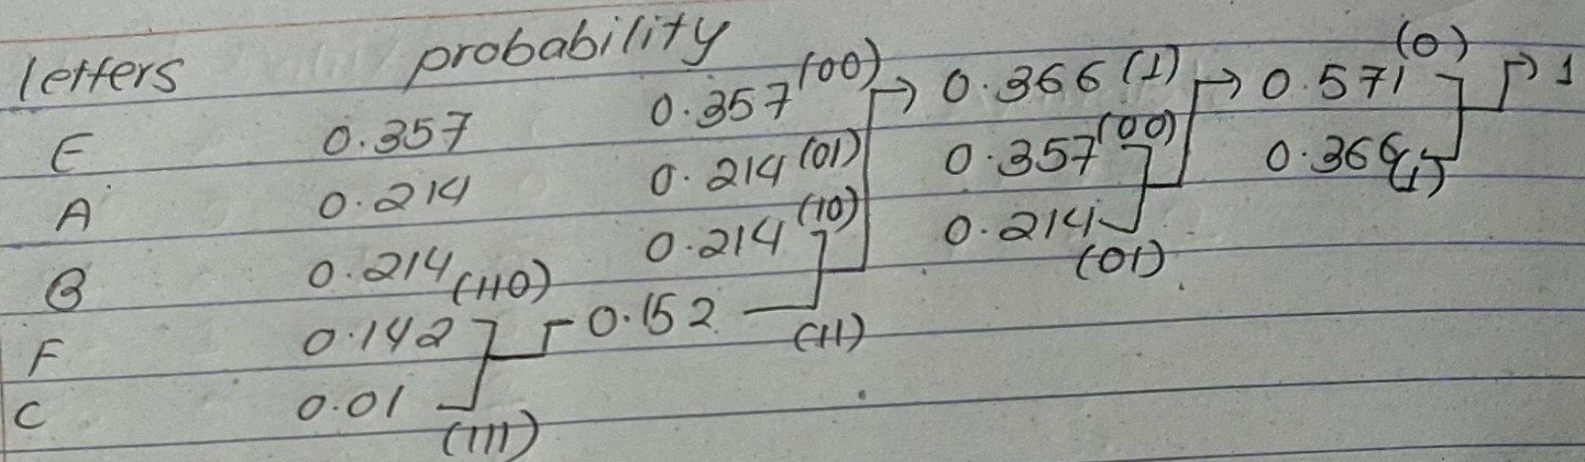 letters probability
E 0.357 0.357 (00) → 0.366 (1) → 0.571 (0) → 1
A 0.214 0.214 (01) 0.357 (00) 0.366 (1)
B 0.214 0.214 (10) 0.214 (01)
F 0.142 (110) 0.152 (11)
C 0.01 (111)